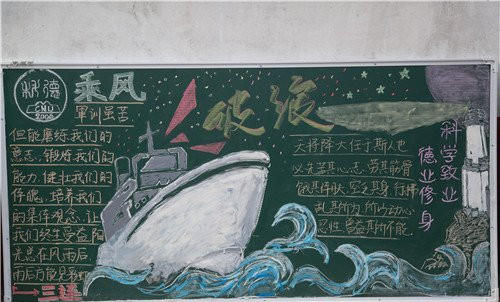 栎德
CMU
2008
乘风
破浪
軍训虽苦
但能磨练我们的
意志,锻炼我们的
能力,健壮我们的
体魄,培养我们
的集体观念,让
我们终生受益,阳
光总在风雨后
雨后方能见彩虹
天将降大任于斯人也
必先苦其心志,劳其筋骨
饿其体肤,空乏其身,行拂
乱其所为,所以动心
忍性,曾益其所不能。
科学致业
德业修身